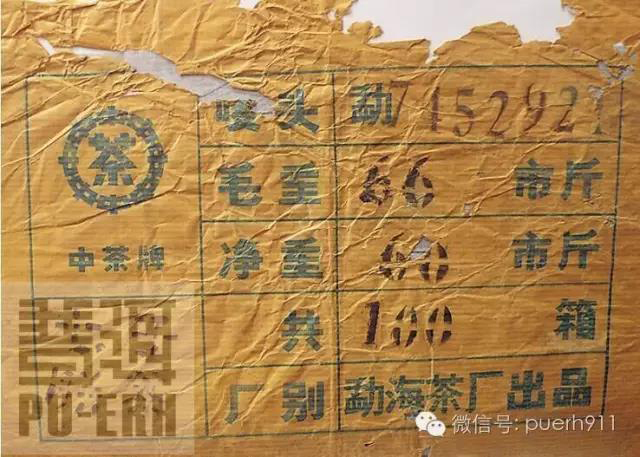 唛头 勐7152921
茶
毛重 66 市斤
中茶牌
净重 60 市斤
共 100 箱
PU ERH
厂别 勐海茶厂出品
微信号: puerh911